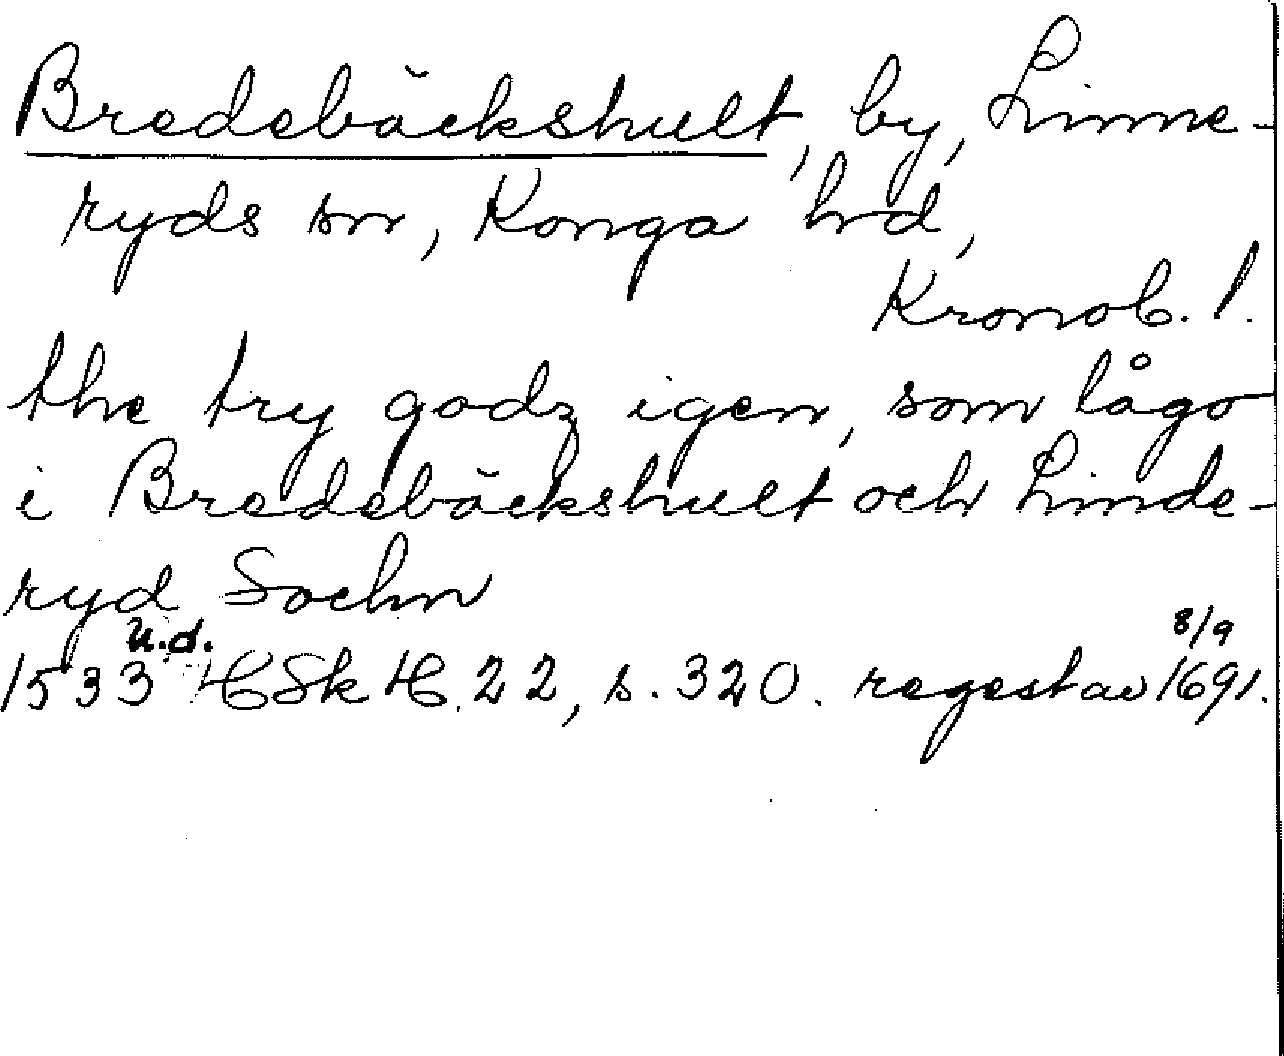 Bredebäckshult, by, Linne-
ryds sn, Konga hd,
Kronob. l.
the try godz igen, som lågo
i Bredebäckshult och Linde-
ryd Sochn
1533 u.d. HSkH 22, s. 320. regest av 8/9 1691.